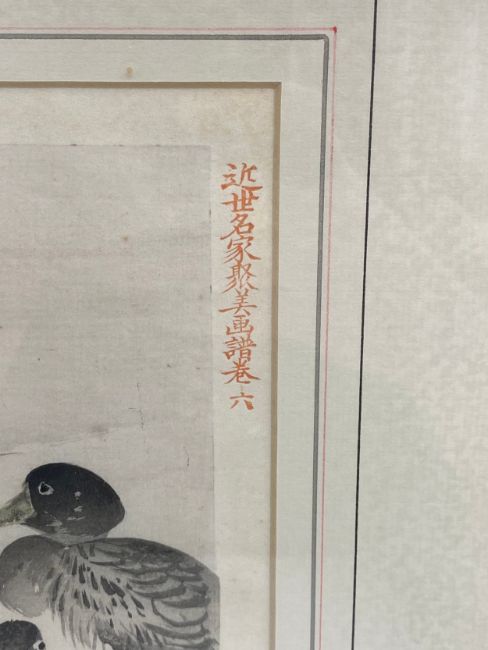 近世名家聚美画譜巻六